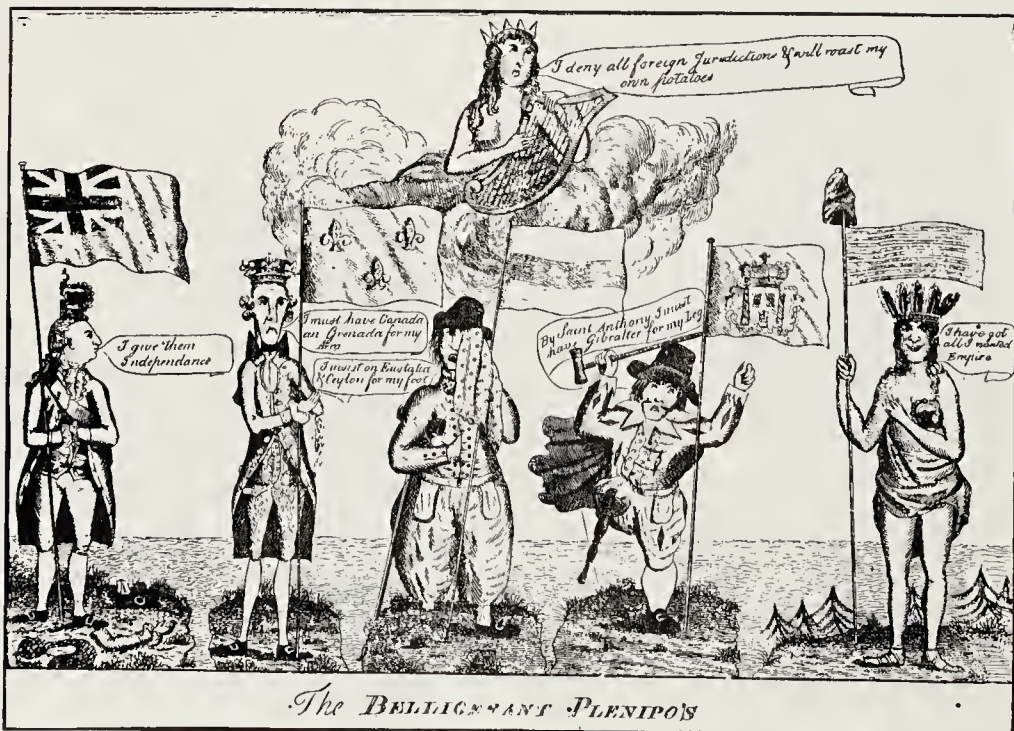 I deny all foreign Jurisdictions & will roast my
own potatoes
I give them
Independance
I must have Canada
an Grenada for my
I insist on Eustatia
& Ceylon for my foot
By Saint Anthony I must
have Gibralter for my Leg
I have got
all I wanted
Empire
The BELLIGERANT PLENIPO'S